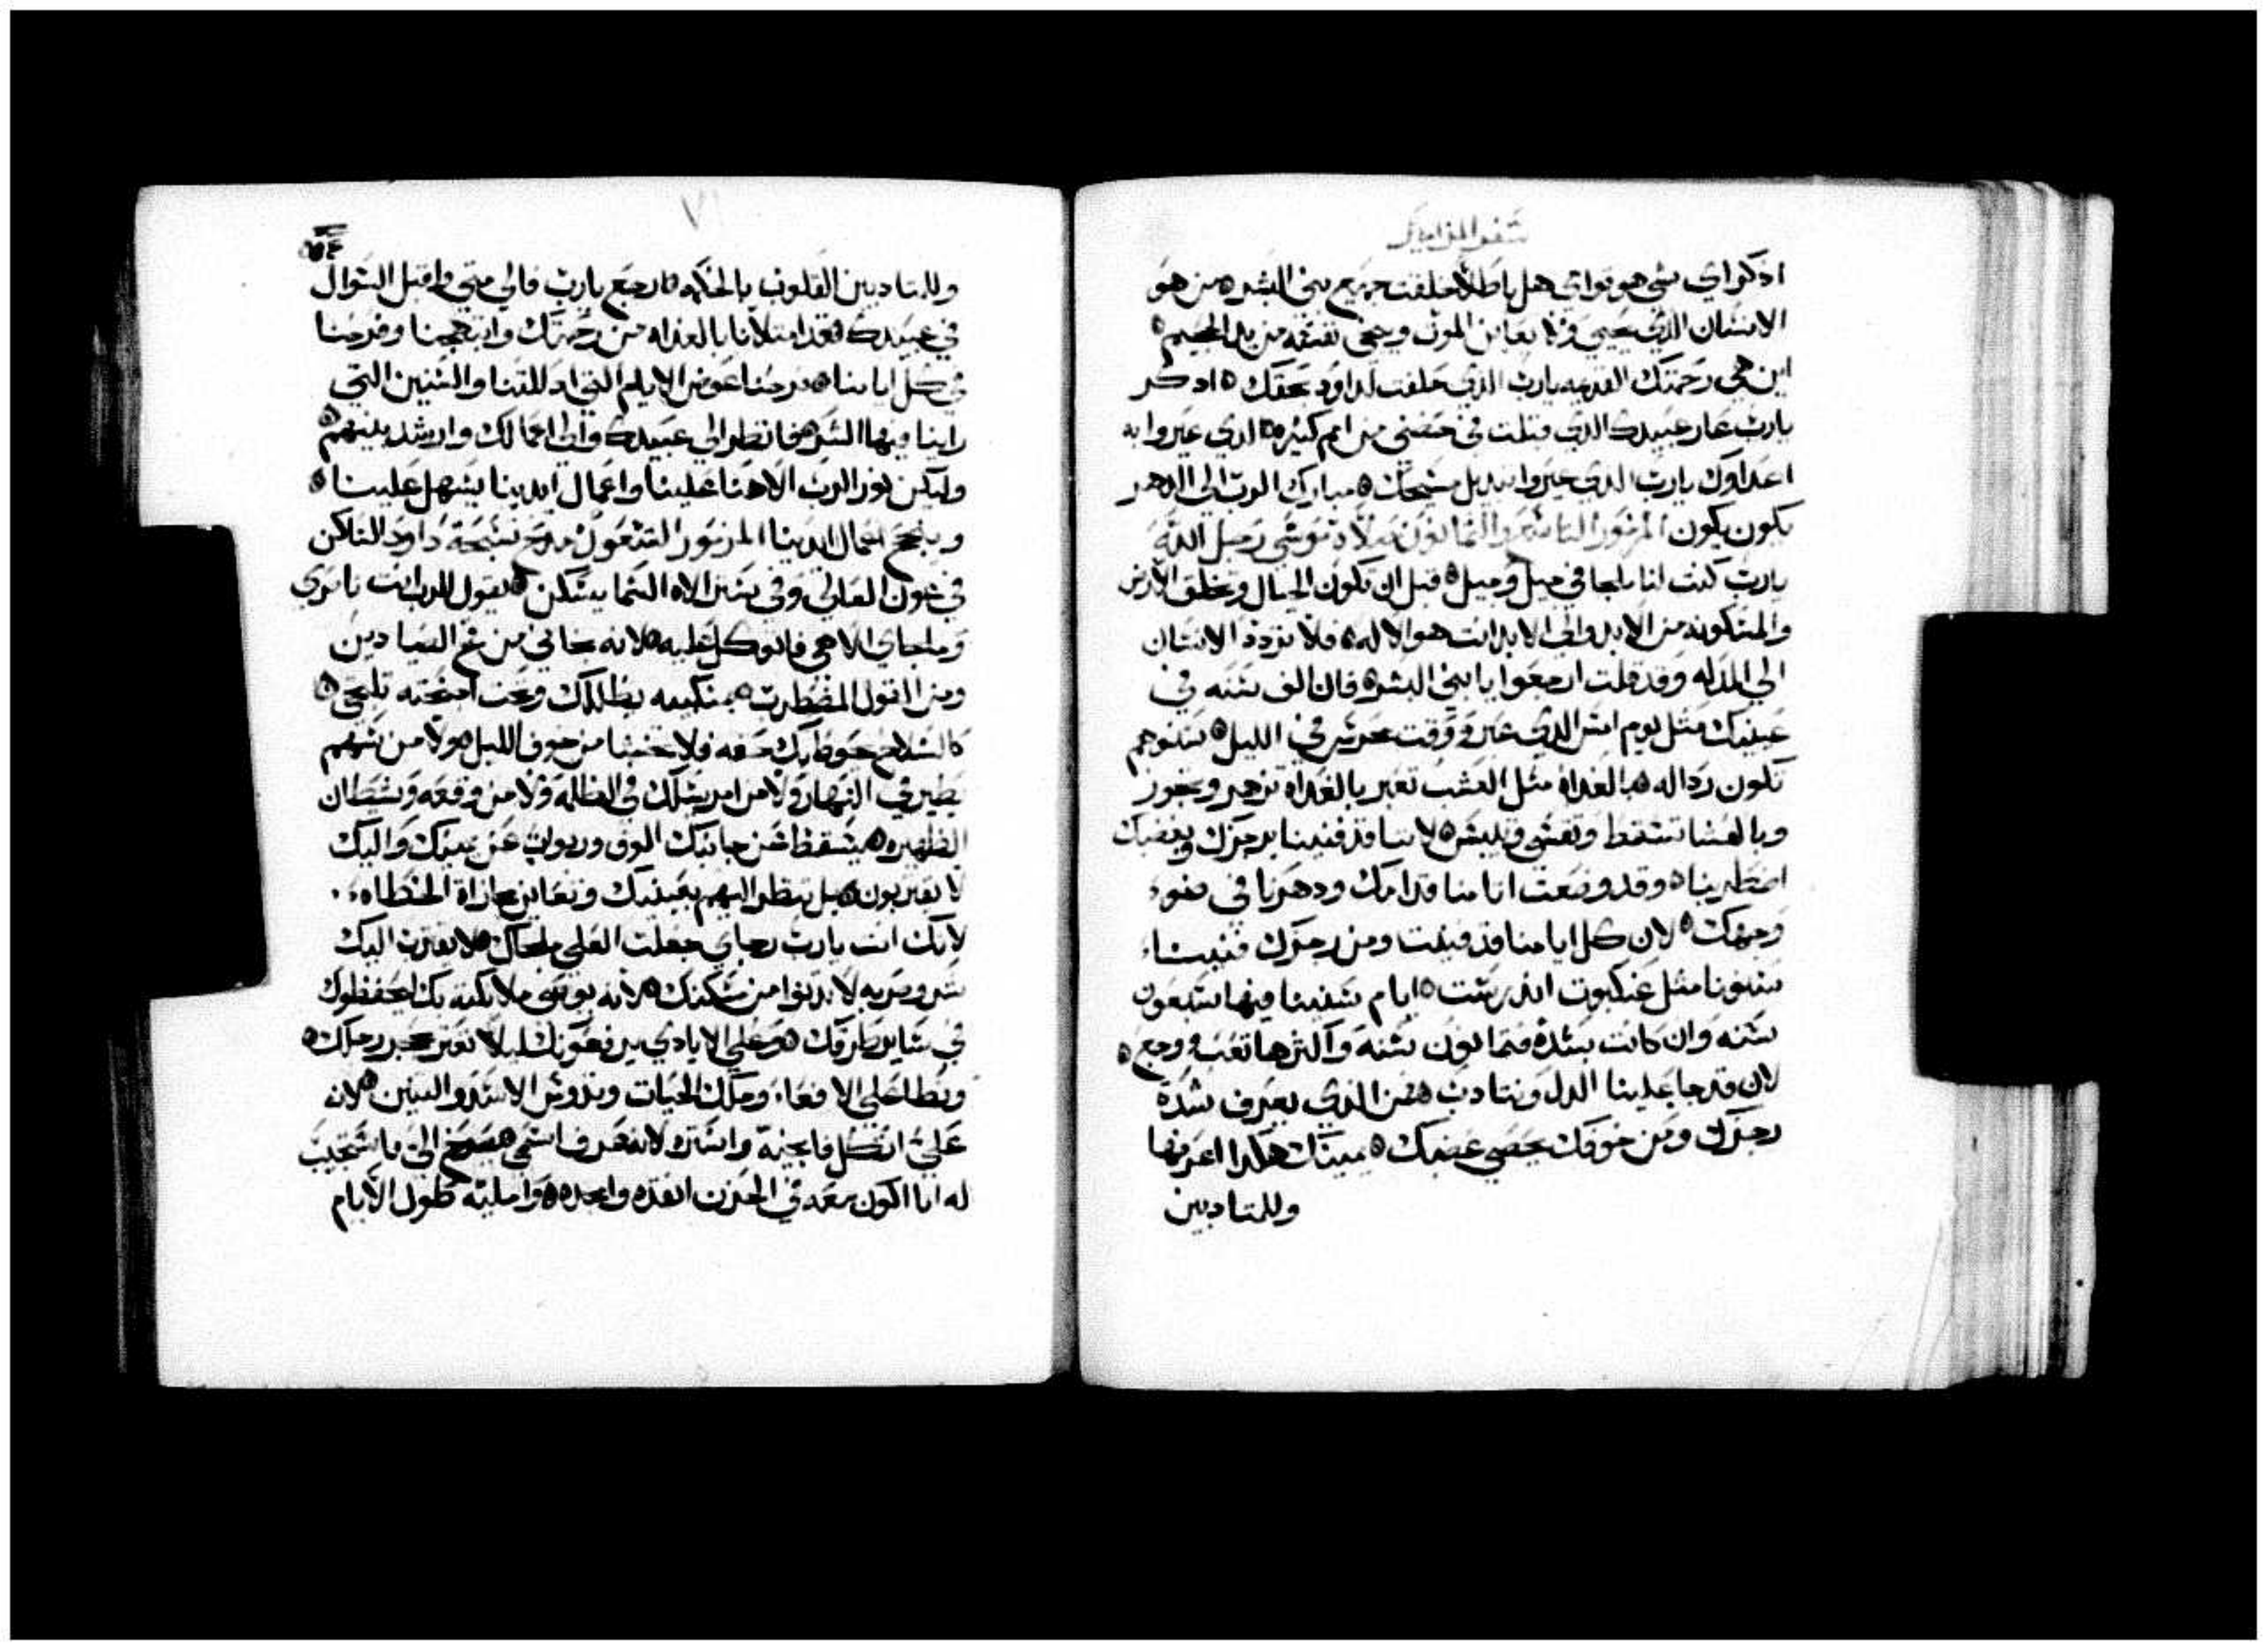 سفر المزامير
اذكر اي شي هو قوامي هل باطلا خلقت جميع بني البشر ه من هو
الانسان الذي يحيى ولا يعاين الموت وينجي نفسه من يد الجحيم ه
اين هي رحمتك القديمه يارب الذي حلفت لداود بحقك ه اذكر
يارب عار عبيدك الذي قبلت في حضني من امم كثيره ه الذي عيروا به
اعداوك يارب الذي عيروا بتبديل مسيحك ه مبارك الرب الي الدهر
يكون يكون المزمور التاسع والثمانون صلاة موسي رجل الله
يارب كنت لنا ملجا في جيل وجيل ه قبل ان تكون الجبال وتخلق الارض
والمسكونه من الابد والي الابد انت هو الاله ه فلا تردد الانسان
الي المذله وقد قلت ارجعوا يا بني البشر ه فان الف سنه في
عينيك مثل يوم امس الذي عبر ووقت محرس في الليل ه سنوهم
تكون رداله ه بالغداة مثل العشب تعبر بالغداه تزهر وتجوز
وبالعشا تسقط وتقسي وتيبس ه لاننا قد فنينا برجزك وبغضبك
اضطربنا ه وقد وضعت اثامنا قدامك ودهرنا في ضوء
وجهك ه لان كل ايامنا قد فنيت ومن رجزك فنينا
سنونا مثل عنكبوت اندرست ه ايام سنينا فيها سبعون
سنه وان كانت بشدة فثمانون سنه واكثرها تعب ووجع ه
لان قد جا علينا الذل ونتادب ه من الذي يعرف شدة
رجزك ومن خوفك يحصي غضبك ه يمينك هكذا اعرفها
وللمتادبين
وللمتادبين القلوب بالحكمه ه ارجع يارب فالي متي واقبل السوال
في عبيدك ه فقد امتلانا بالغداه من رحمتك وابتهجنا وفرحنا
في كل ايامنا ه فرحنا عوض الايام التي اذللتنا والسنين التي
راينا فيها الشر ه فانظر الي عبيدك والي اعمالك وارشد بنيهم ه
وليكن نور الرب الاهنا علينا واعمال ايدينا يسهل علينا ه
وينجح اعمال ايدينا المزمور التسعون مدح تسبحة داود الساكن
في عون العالي وفي ستر الاه السما يسكن ه يقول للرب انت ناصري
وملجاي الاهي فاتوكل عليه ه لانه نجاني من فخ الصيادين
ومن القول المضطرب ه بمنكبيه يظللك وتحت اجنحته تلتجي ه
كالسلاح يحوط بك حقه فلا تخشا من خوف الليل ه ولا من سهم
يطير في النهار ولا من امر يسلك في الظلمه ولا من وقعه وشيطان
الظهيره ه يسقط عن جانبك الوف وربوات عن يمينك واليك
لا يقتربون ه بل تنظر اليهم بعينيك وتعاين مجازاة الخطاه
لانك انت يارب رجاي جعلت العلي ملجاك ه لا يقترب اليك
شر وضربه لا يدنوا من مسكنك ه لانه يوصي ملايكته بك ليحفظوك
في ساير طرقك ه وعلي الايادي يرفعونك ليلا تعثر بحجر رجلك ه
وتطا علي الافعاء وملك الحيات وتدوس الاسد والتنين ه لانه
علي اتكل فانجيه واستره لانه عرف اسمي ه يصرخ الي فاستجيب
له انا اكون معه في الحزن انقذه وامجده ه واملیه طول الايام